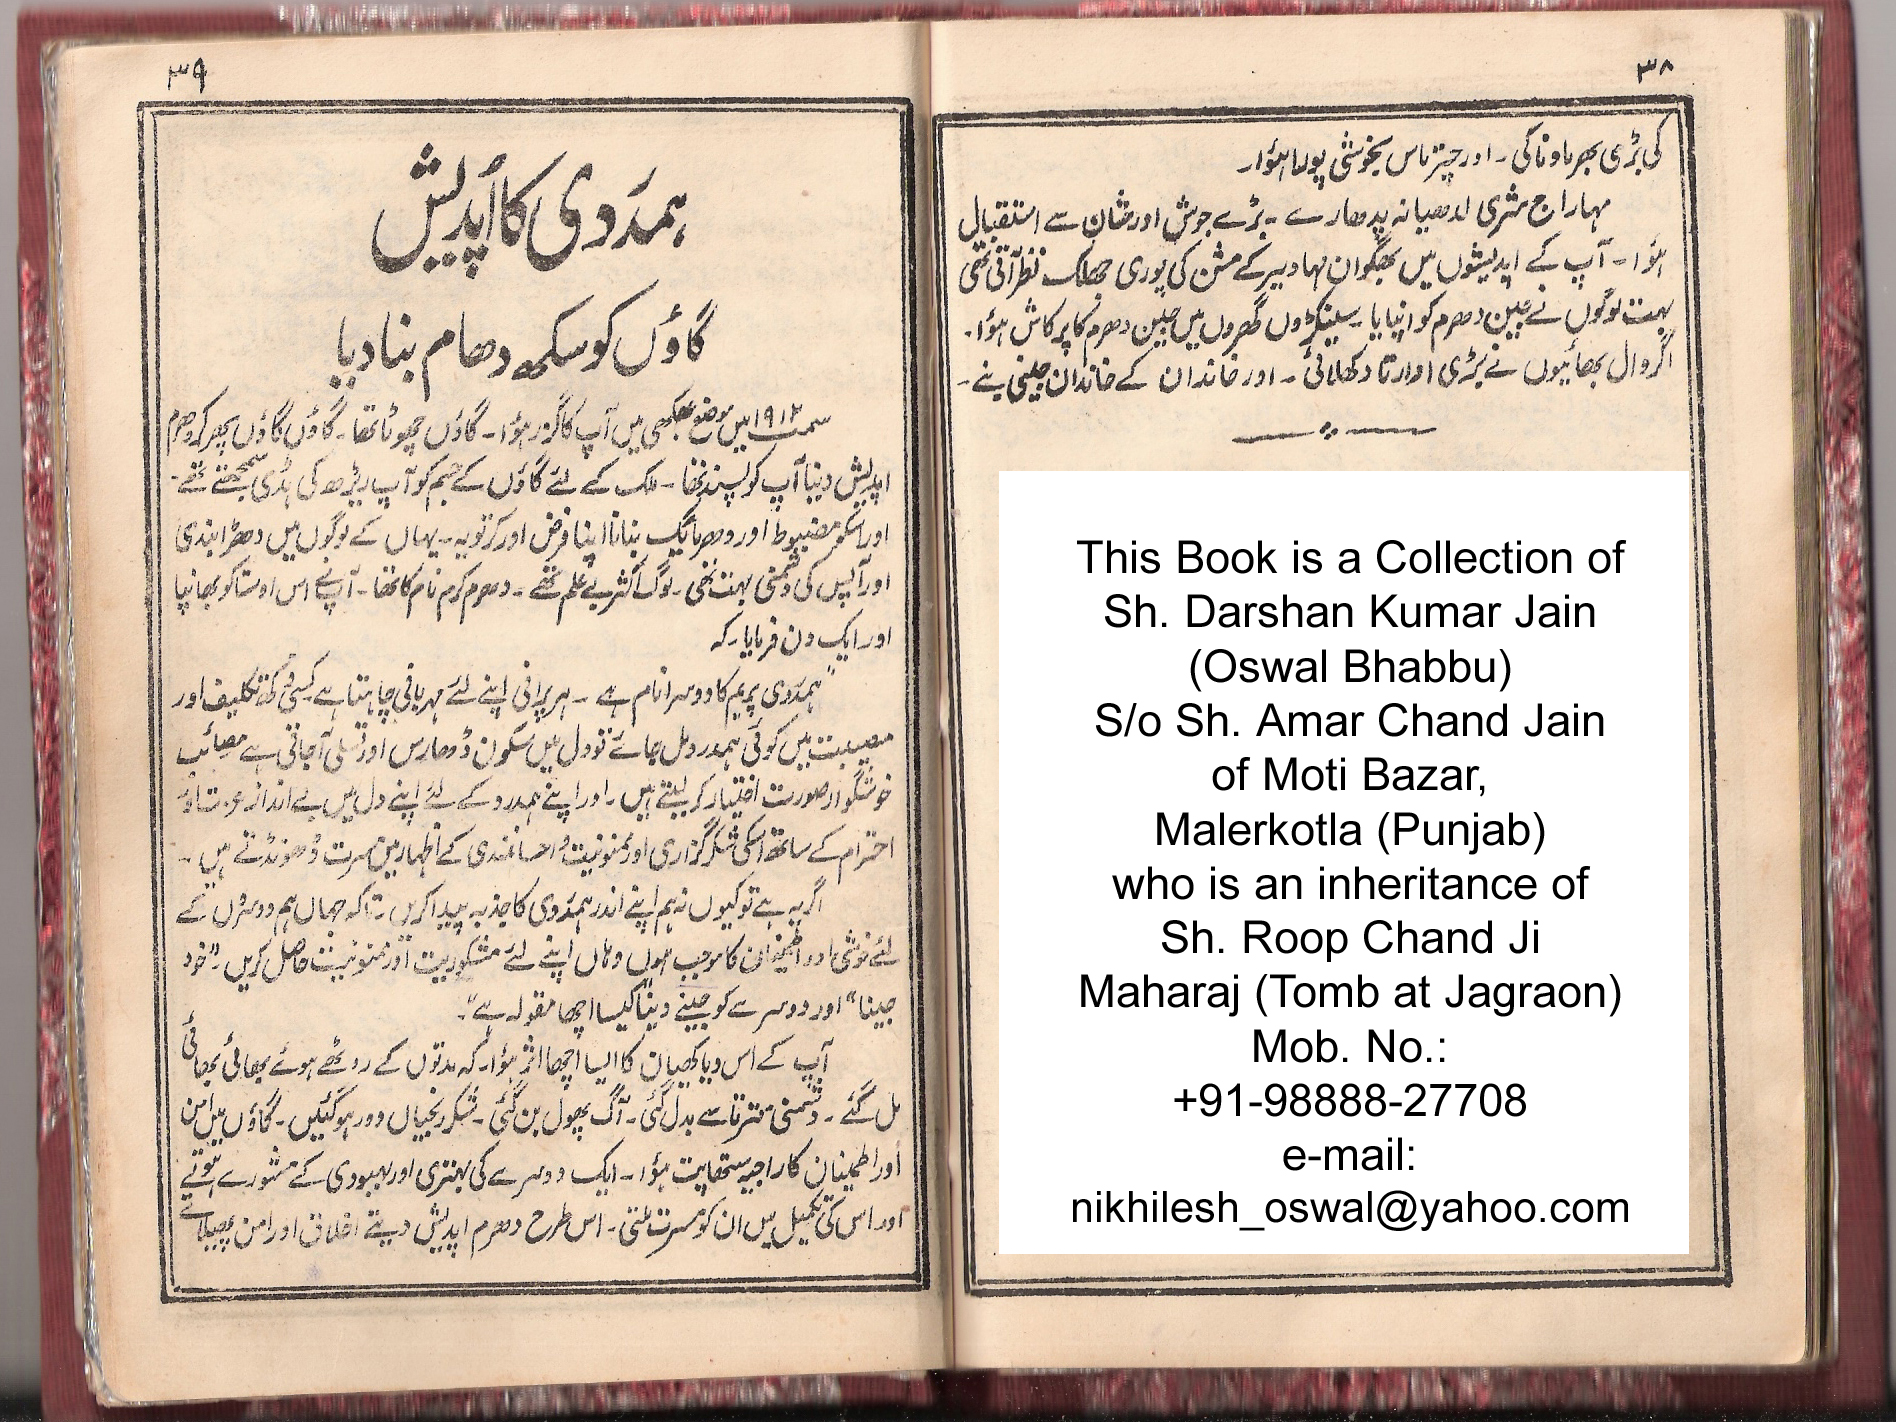 ۳۸
کی بڑی پھر ماونا کی ۔ اور چتر ماس بخوشی پورا ہؤا۔
مہاراج شری لدھیانہ پدھارے ۔ بڑے جوش اور شان سے استقبال
ہؤا ۔ آپ کے اپدیشوں میں بھگوان مہاویر کے مشن کی پوری جھلک نظر آتی تھی
بہت لوگوں نے جین دھرم کو اپنایا ۔ سینکڑوں گھروں میں جین دھرم کا پرکاش ہؤا۔
اگروال بھائیوں نے بڑی اوارتا دکھلائی ۔ اور خاندان کے خاندان جینی بنے ۔
This Book is a Collection of
Sh. Darshan Kumar Jain
(Oswal Bhabbu)
S/o Sh. Amar Chand Jain
of Moti Bazar,
Malerkotla (Punjab)
who is an inheritance of
Sh. Roop Chand Ji
Maharaj (Tomb at Jagraon)
Mob. No.:
+91-98888-27708
e-mail:
nikhilesh_oswal@yahoo.com
۳۹
ہمدردی کا اُپدیش
گاؤں کو سکھ دھام بنا دیا
سمت ۱۹۱۲ میں موضع میں آپ کا گزر ہؤا ۔ گاؤں چھوٹا تھا ۔ گاؤں گاؤں پھر کر دھرم
اپدیش دینا آپ کو پسند تھا ۔ ملک کے لئے گاؤں کے جسم کو آپ ریڑھ کی ہڈی سمجھتے تھے ۔
اور اسکو مضبوط اور دھرماتک بنانا اپنا فرض اور کرتویہ ۔ یہاں کے لوگوں میں دھڑا بندی
اور آپس کی دشمنی بہت تھی ۔ لوگ اکثر بے علم تھے ۔ دھرم کرم نام کا تھا ۔ آپ نے اس اوستا کو بھانپا
اور ایک دن فرمایا ۔ کہ
"ہمدردی پریم کا دوسرا نام ہے ۔ ہر پرانی اپنے لئے مہربانی چاہتا ہے کسی دکھ تکلیف اور
مصیبت میں کوئی ہمدرد مل جائے تو دل میں سکون ڈھارس اور تسلی آ جاتی ہے مصائب
خوشگوار صورت اختیار کر لیتے ہیں ۔ اور اپنے ہمدرد کے لئے اپنے دل میں بے انداز عزت و
احترام کے ساتھ اسکی شکر گزاری اور ممنونیت و احسانمندی کے اظہار میں مسرت ڈھونڈتے ہیں ۔
اگر یہ ہے تو کیوں نہ ہم اپنے اندر ہمدردی کا جذبہ پیدا کریں ۔ تاکہ جہاں ہم دوسروں کے
لئے خوشی اور اطمینان کا موجب ہوں وہاں اپنے لئے مشکوریت اور ممنونیت حاصل کریں ۔ "خود
جینا" اور دوسرے کو جینے دینا" کیسا اچھا مقولہ ہے"۔
آپ کے اس ویاکھیان کا ایسا اچھا اثر ہؤا ۔ کہ مدتوں کے روٹھے ہوئے بھائی بھائی
مل گئے ۔ دشمنی مترتا سے بدل گئی ۔ آگ پھول بن گئی ۔ شکر رنجیاں دور ہو گئیں ۔ گاؤں میں امن
اور اطمینان کا راجیہ ستھاپت ہؤا ۔ ایک دوسرے کی بہتری اور بہبودی کے مشورے ہوتے
اور اس کی تکمیل میں ان کو مسرت ملتی ۔ اس طرح دھرم اپدیش دیتے اخلاق اور امن پھیلاتے